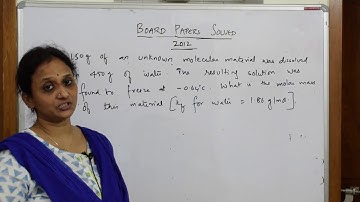 BOARD PAPERS SOLVED
2012
150g of an unknown molecular material was dissolved
450g of water The resulting solution was
found to freeze at -0.64°c. What is the molar mass
of this material [Kf for water = 1.86